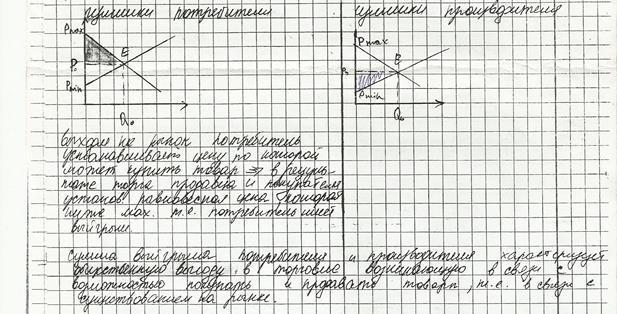 излишки потребителя
излишки производителя
Pmax
E
P₀
Pmin
Q₀
Pmax
E
P₀
Pmin
Q₀
выходя на рынок потребитель
устанавливает цену по которой
может купить товар ⇒ в резуль-
тате торга продавца и покупателя
установ. равновесная цена которая
ниже мах. т.е. потребитель имеет
выйгрыш.
Сумма выйгрыша потребителя и производителя характеризует
общественную выгоду, в торговле возникающую в связи с
возможностью покупать и продавать товары, т.е. в связи с
существованием на рынке.